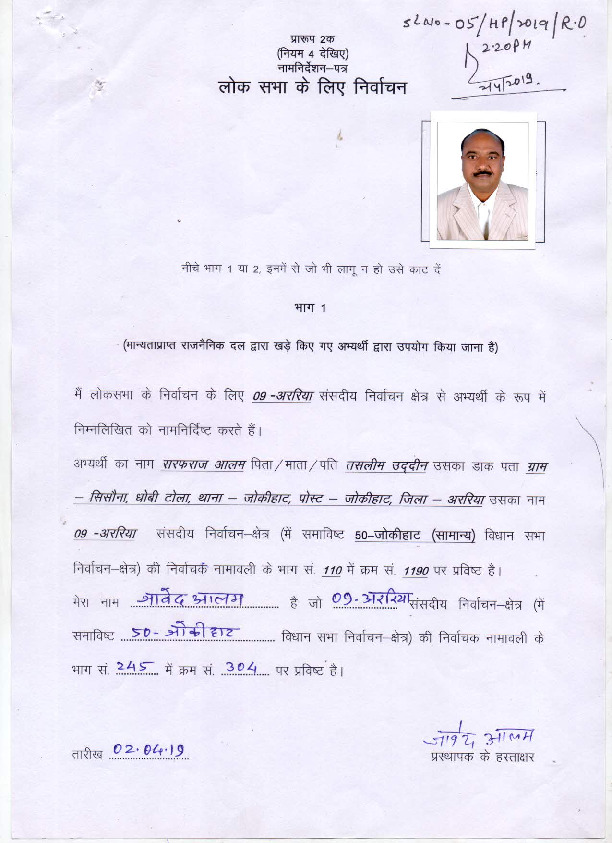 SLNO-05/HP/2019/R.O
2:20PM
2/4/2019.
प्रारूप 2क
(नियम 4 देखिए)
नामनिर्देशन–पत्र
लोक सभा के लिए निर्वाचन
नीचे भाग 1 या 2, इनमें से जो भी लागू न हो उसे काट दें
भाग 1
(मान्यताप्राप्त राजनैनिक दल द्वारा खड़े किए गए अभ्यर्थी द्वारा उपयोग किया जाना है)
मैं लोकसभा के निर्वाचन के लिए 09 -अररिया संसदीय निर्वाचन क्षेत्र से अभ्यर्थी के रूप में
निम्नलिखित को नामनिर्दिष्ट करते हैं।
अभ्यर्थी का नाम सरफराज आलम पिता/माता/पति तसलीम उद्दीन उसका डाक पता ग्राम
– सिसौना, धोबी टोला, थाना – जोकीहाट, पोस्ट – जोकीहाट, जिला – अररिया उसका नाम
09 -अररिया संसदीय निर्वाचन–क्षेत्र (में समाविष्ट 50–जोकीहाट (सामान्य) विधान सभा
निर्वाचन–क्षेत्र) की निर्वाचक नामावली के भाग सं. 110 में क्रम सं. 1190 पर प्रविष्ट है।
मेरा नाम जावेद आलम है जो 09-अररिया संसदीय निर्वाचन–क्षेत्र (में
समाविष्ट 50- जोकीहाट विधान सभा निर्वाचन–क्षेत्र) की निर्वाचक नामावली के
भाग सं. 245 में क्रम सं. 304 पर प्रविष्ट है।
जावेद आलम
तारीख 02.04.19
प्रस्थापक के हस्ताक्षर